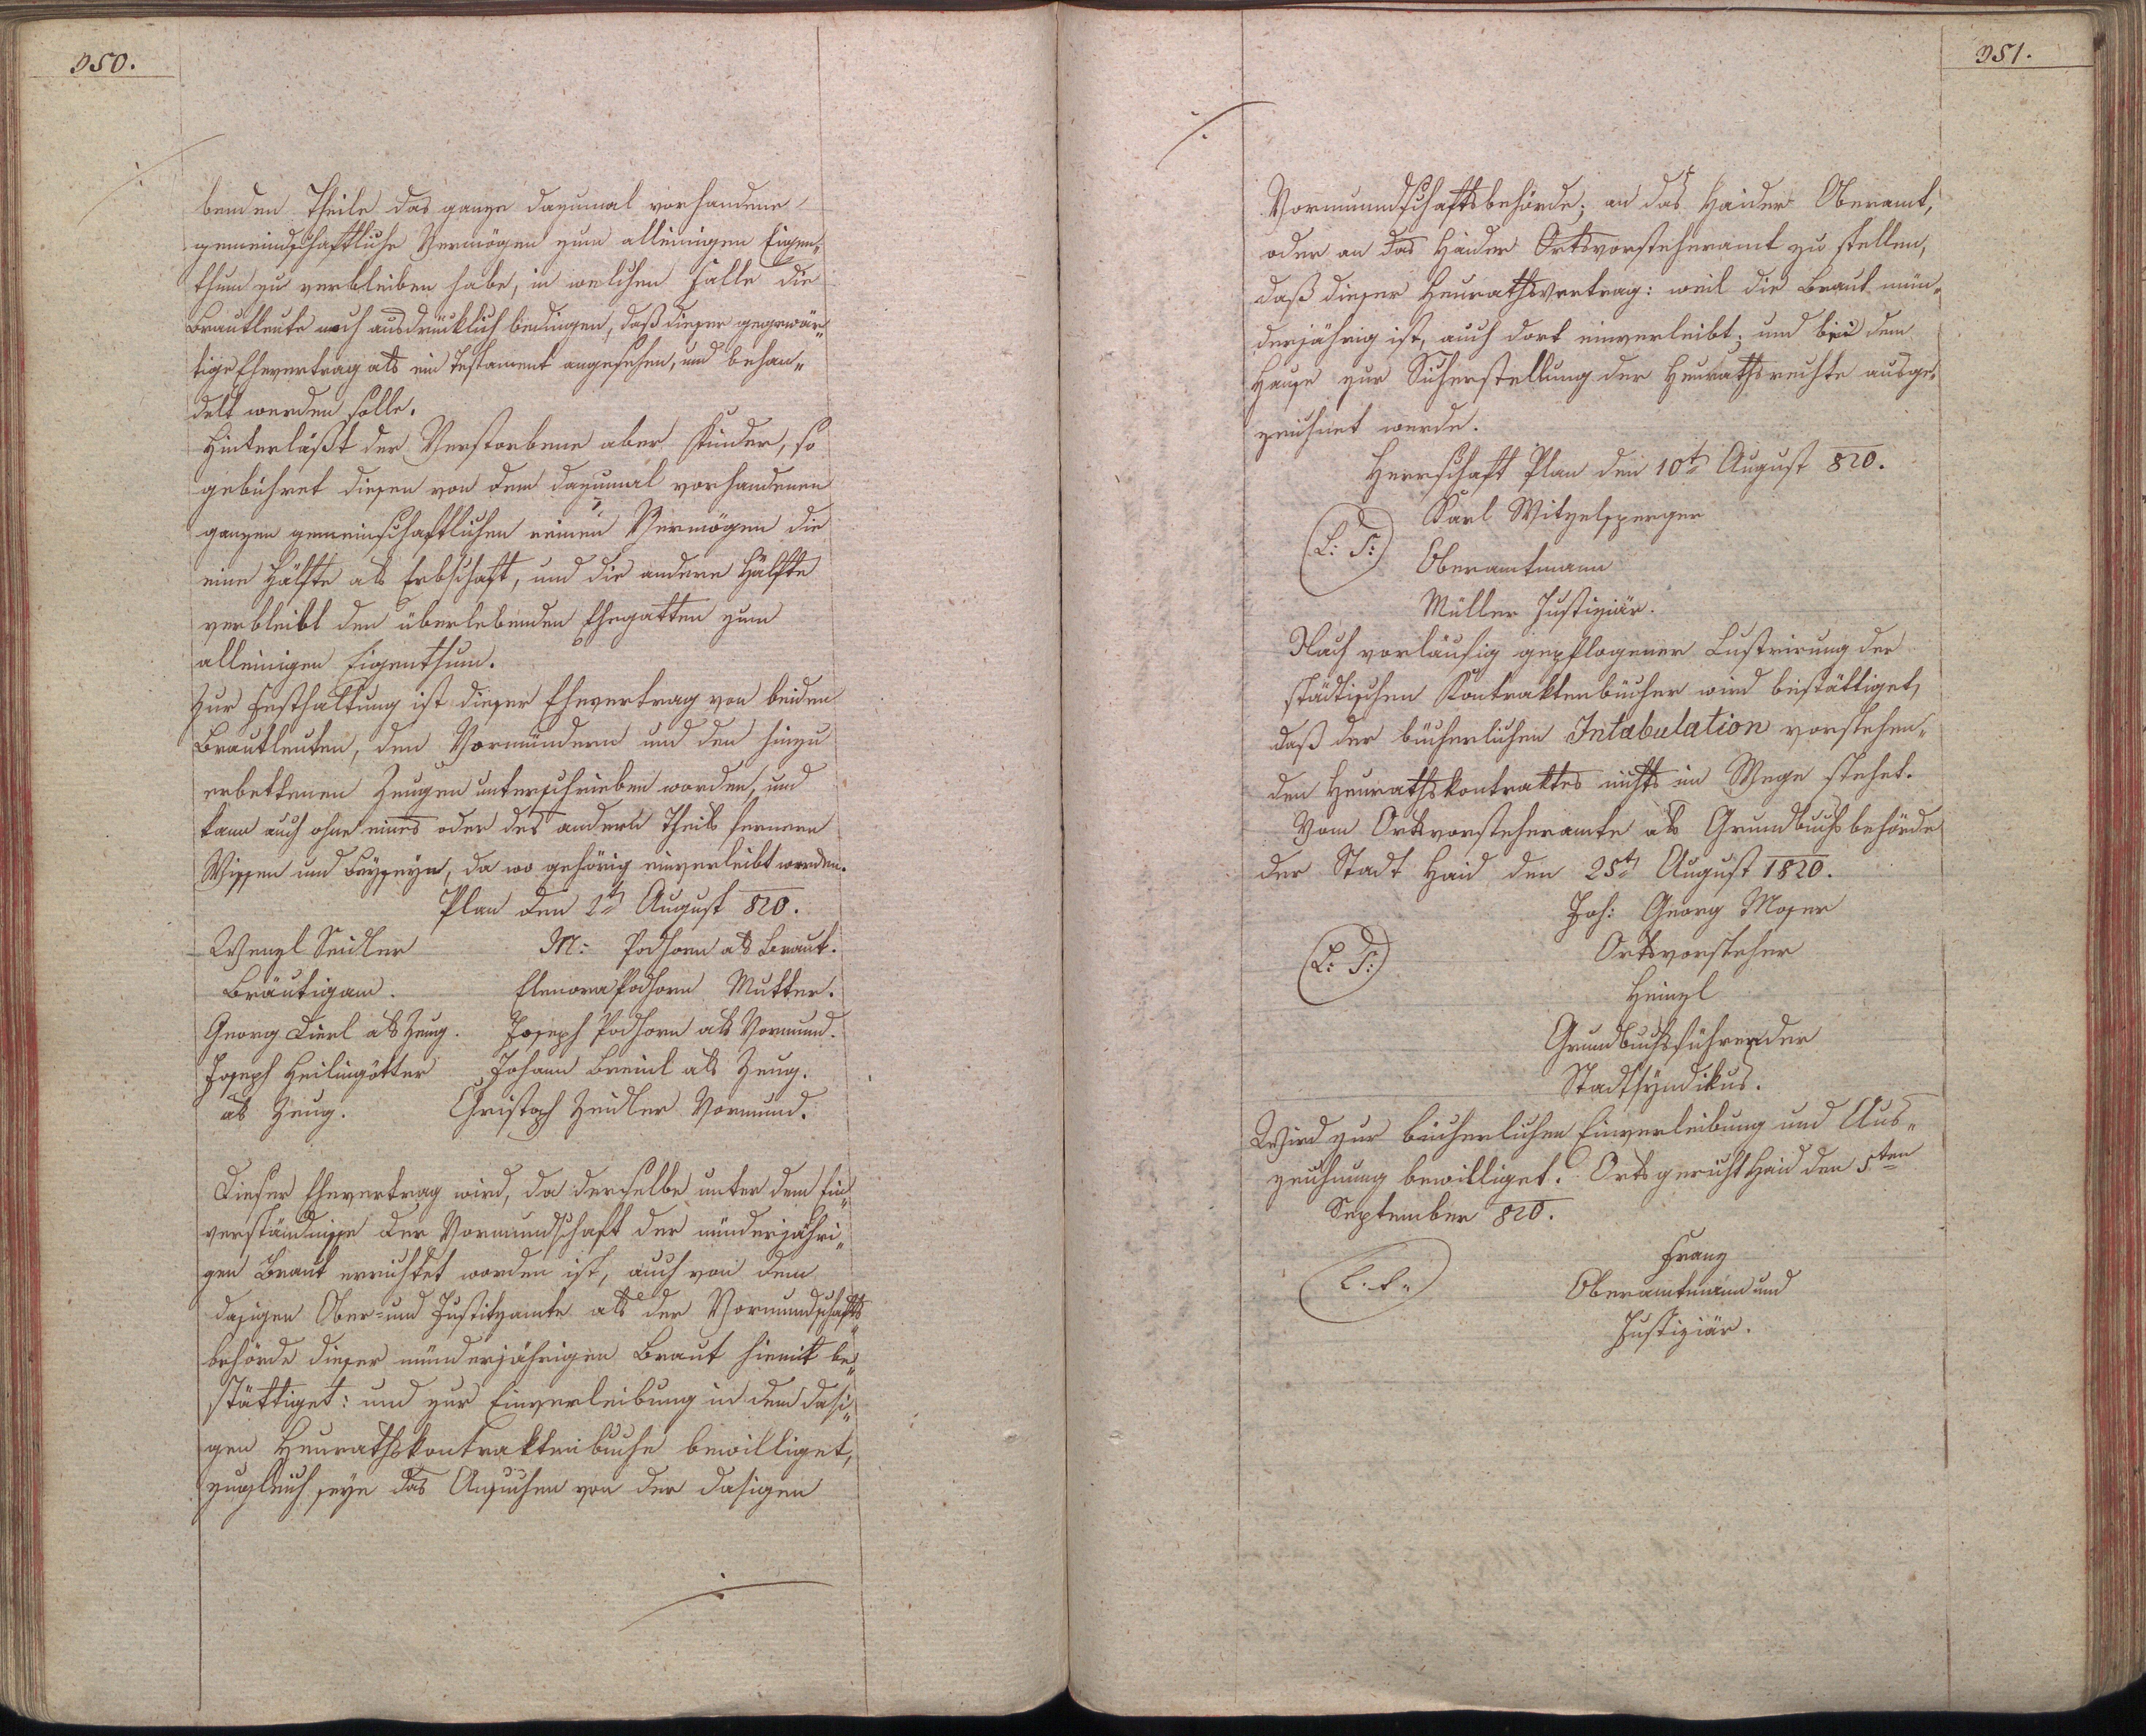 350.
benden Theile das ganze dazumal vorhandene
gemeindschaftliche Vermögen zum alleinigen Eigen„
thum zu verbleiben habe, in welchen Falle die
Brautleute noch ausdrücklich bedingen, daß dieser gegenwär„
tige Ehevertrag als ein Testament angesehen, und behan„
delt werden solle.
Hinterläßt der Verstorbene aber Kinder, so
gebühret diesen von dem dazumal vorhandenen
ganzen gemeinschaftlichen reinen Vermögen die
eine Hälfte als Erbschaft, und die andere Hälfte
verbleibt den überlebenden Ehegatten zum
alleinigen Eigenthum.
Zur Festhaltung ist dieser Ehevertrag von beiden
Brautleuten, den Vormündern und den hinzu
erbettenen Zeugen unterschrieben worden, und
kann auch ohne eines oder des andern Theils fernern
Wissen und Beyseyn, da wo gehörig einverleibt werden.
Plan den 2t August 820.
Wenzl Seidler M: Podhorn als Braut.
Bräutigam. Elenora Podhorn Mutter.
Georg Lierl als Zeug. Joseph Podhorn als Vormund.
Joseph Heilingötter Johann Breinl als Zeug.
als Zeug. Christoph Zeidler Vormund.
Dieser Ehevertrag wird, da derselbe unter dem Ein„
verständnisse der Vormundschaft der minderjähri„
gen Braut errichtet worden ist, auch von dem
dasigen Ober- und Justitzamte als der Vormundschafts
behörde dieser minderjährigen Braut hiemit be„
stättiget: und zur Einverleibung in dem dasi„
gen Heurathskontraktenbuche bewilliget,
zugleich seye das Ansuchen von der dasigen
351.
Vormundschaftsbehörde; an das Haider Oberamt,
oder an das Haider Ortsvorsteheramt zu stellen,
daß dieser Heurathsvertrag: weil die Braut min„
derjährig ist, auch dort einverleibt; und bei dem
Hause zur Sicherstellung der Heurathsrechte ausge„
zeichnet werde.
Herrschaft Plan den 10t August 820.
Karl Witzelsperger
(L: S:)
Oberamtmann
Müller Justiziär.
Nach vorläufig gepflogener Lustrirung der
städtischen Kontraktenbücher wird bestättiget,
daß der bücherlichen Intabulation vorstehen„
den Heurathskontraktes nichts im Wege stehet.
Vom Ortsvorsteheramte als Grundbuchsbehörde
der Stadt Haid den 25t August 1820.
Joh: Georg Moser
(L: S:) Ortsvorsteher
Heinzl
Grundbuchsführender
Stadtsyndikus.
Wird zur bücherlichen Einverleibung und Aus„
zeichnung bewilliget. Ortsgericht Haid den 5ten
September 820.
Franz
(L. S.) Oberamtmann und
Justiziär.